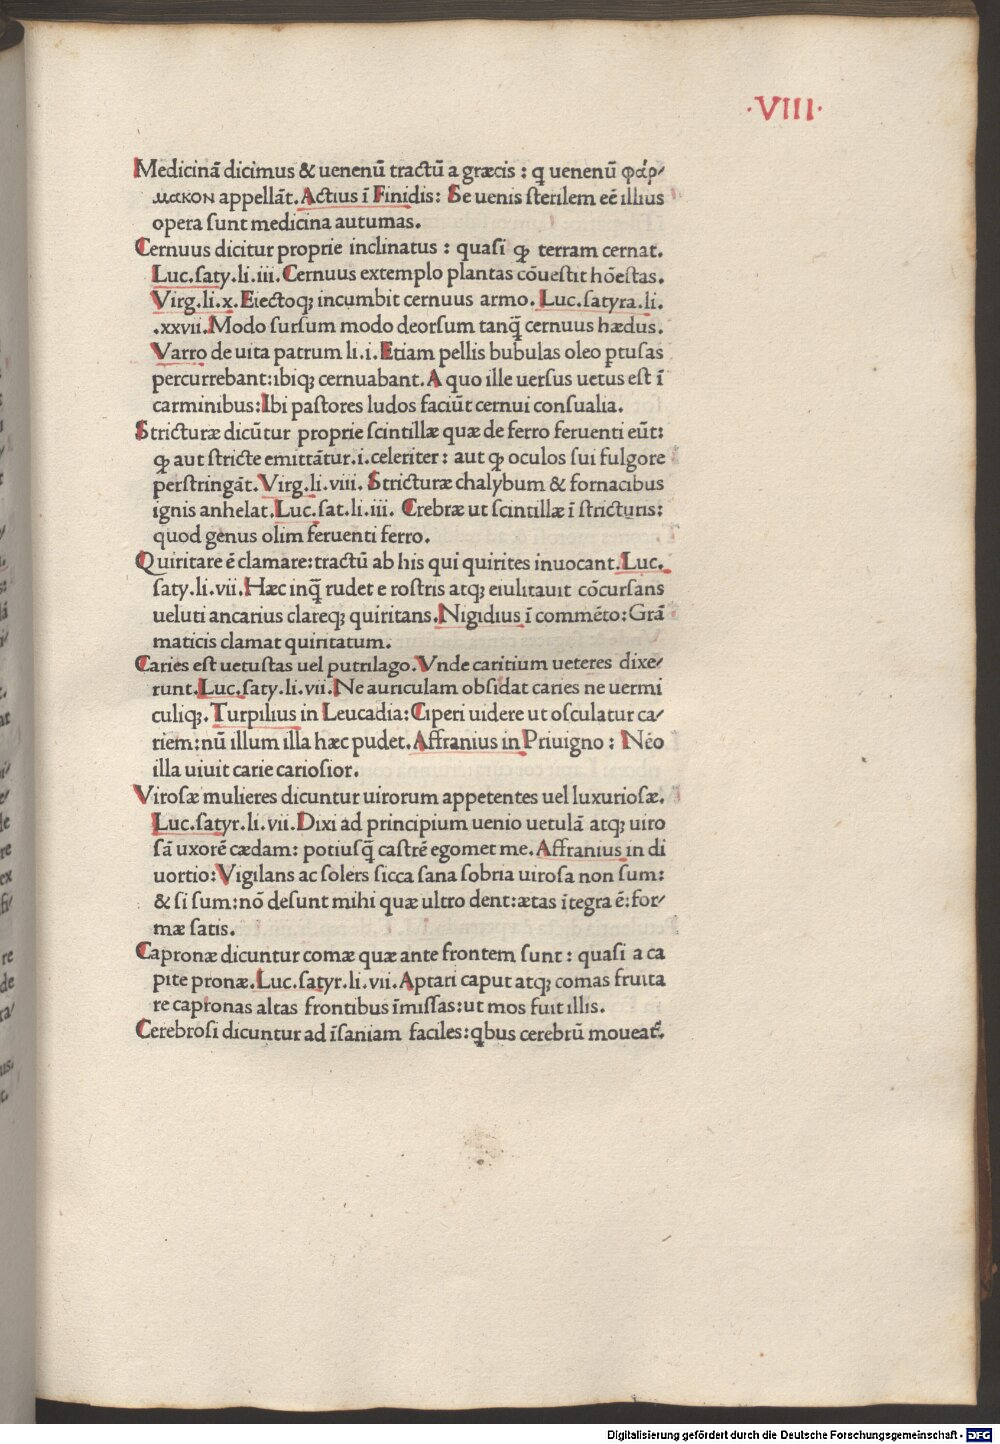 ·VIII·
Medicinā dicimus & uenenū tractū a græcis : q uenenū φάρ/
μακον appellāt. Actius ī Finidis: Se uenis sterilem eē illius
opera sunt medicina autumas.
Cernuus dicitur proprie inclinatus : quasi ꝙ terram cernat.
Luc.saty.li.iii. Cernuus extemplo plantas cōuestit hōestas.
Virg.li.x. Eiectoqꝫ incumbit cernuus armo. Luc.satyra.li.
.xxvii. Modo sursum modo deorsum tanq̄ cernuus hædus.
Varro de uita patrum li.i. Etiam pellis bubulas oleo ꝑtusas
percurrebant:ibiqꝫ cernuabant. A quo ille uersus uetus est ī
carminibus:Ibi pastores ludos faciūt cernui consualia.
Stricturæ dicūtur proprie scintillæ quæ de ferro feruenti eūt:
ꝙ aut stricte emittātur.i.celeriter: aut ꝙ oculos sui fulgore
perstringāt. Virg.li.viii. Stricturæ chalybum & fornacibus
ignis anhelat. Luc.sat.li.iii. Crebræ ut scintillæ ī stricturis:
quod genus olim feruenti ferro.
Quiritare ē clamare:tractū ab his qui quirites inuocant. Luc.
saty.li.vii. Hæc inq̄ rudet e rostris atqꝫ eiulitauit cōcursans
ueluti ancarius clareqꝫ quiritans. Nigidius ī commēto:Grā
maticis clamat quiritatum.
Caries est uetustas uel putrilago. Vnde caritium ueteres dixe/
runt. Luc.saty.li.vii. Ne auriculam obsidat caries ne uermi
culiqꝫ. Turpilius in Leucadia:Ciperi uidere ut osculatur ca/
riem:nū illum illa hæc pudet. Affranius in Priuigno : Nēo
illa uiuit carie cariosior.
Virosæ mulieres dicuntur uirorum appetentes uel luxuriosæ.
Luc.satyr.li.vii. Dixi ad principium uenio uetulā atqꝫ uiro
sā uxorē cædam: potiusq̄ castrē egomet me. Affranius in di
uortio: Vigilans ac solers sicca sana sobria uirosa non sum:
& si sum:nō desunt mihi quæ ultro dent:ætas ītegra ē:for/
mæ satis.
Capronæ dicuntur comæ quæ ante frontem sunt : quasi a ca
pite pronæ. Luc.satyr.li.vii. Aptari caput atqꝫ comas fruita
re capronas altas frontibus īmissas:ut mos fuit illis.
Cerebrosi dicuntur ad īsaniam faciles:qbus cerebrū moueat.
Digitalisierung gefördert durch die Deutsche Forschungsgemeinschaft - DFG